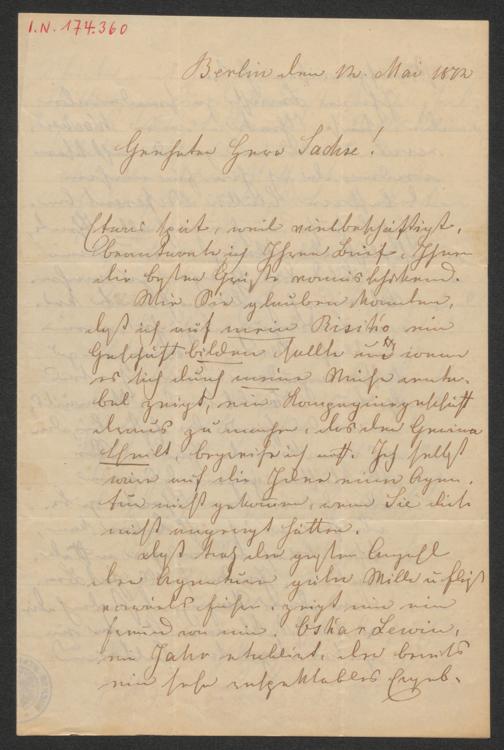 I.N. 174.360
Berlin den 12. Mai 1872
Geehrter Herr Sachse!
Etwas spät, weil vielbeschäftigt,
beantworte ich Ihren Brief, Ihnen
die besten Grüße vorausschickend.
Wie Sie glauben konnten,
daß ich auf mein Risiko ein
Geschäft bilden sollte und wenn
es sich durch meine Mühe renta-
bel zeigt, ein Kompagniegeschäft
daraus zu machen, das den Gewinn
theilt, begreife ich nicht. Ich selbst
wäre auf die Idee einer Agen-
tur nicht gekommen, wenn Sie dies
nicht angeregt hätten.
Daß trotz der großen Anzahl
der Agenturen guter Wille u Fleiß
vorwärts führen, zeigt mir ein
Freund von mir, Oskar Lewin,
ein Jahr etablirt, der bereits
ein sehr respektables Ergeb-